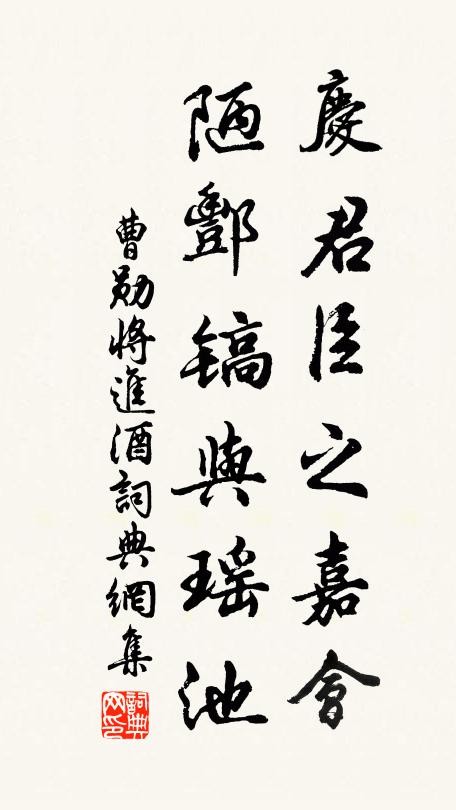 慶君臣之嘉會
陋酆镐與瑤池
曹勛將進酒詞典網集
詞典网印